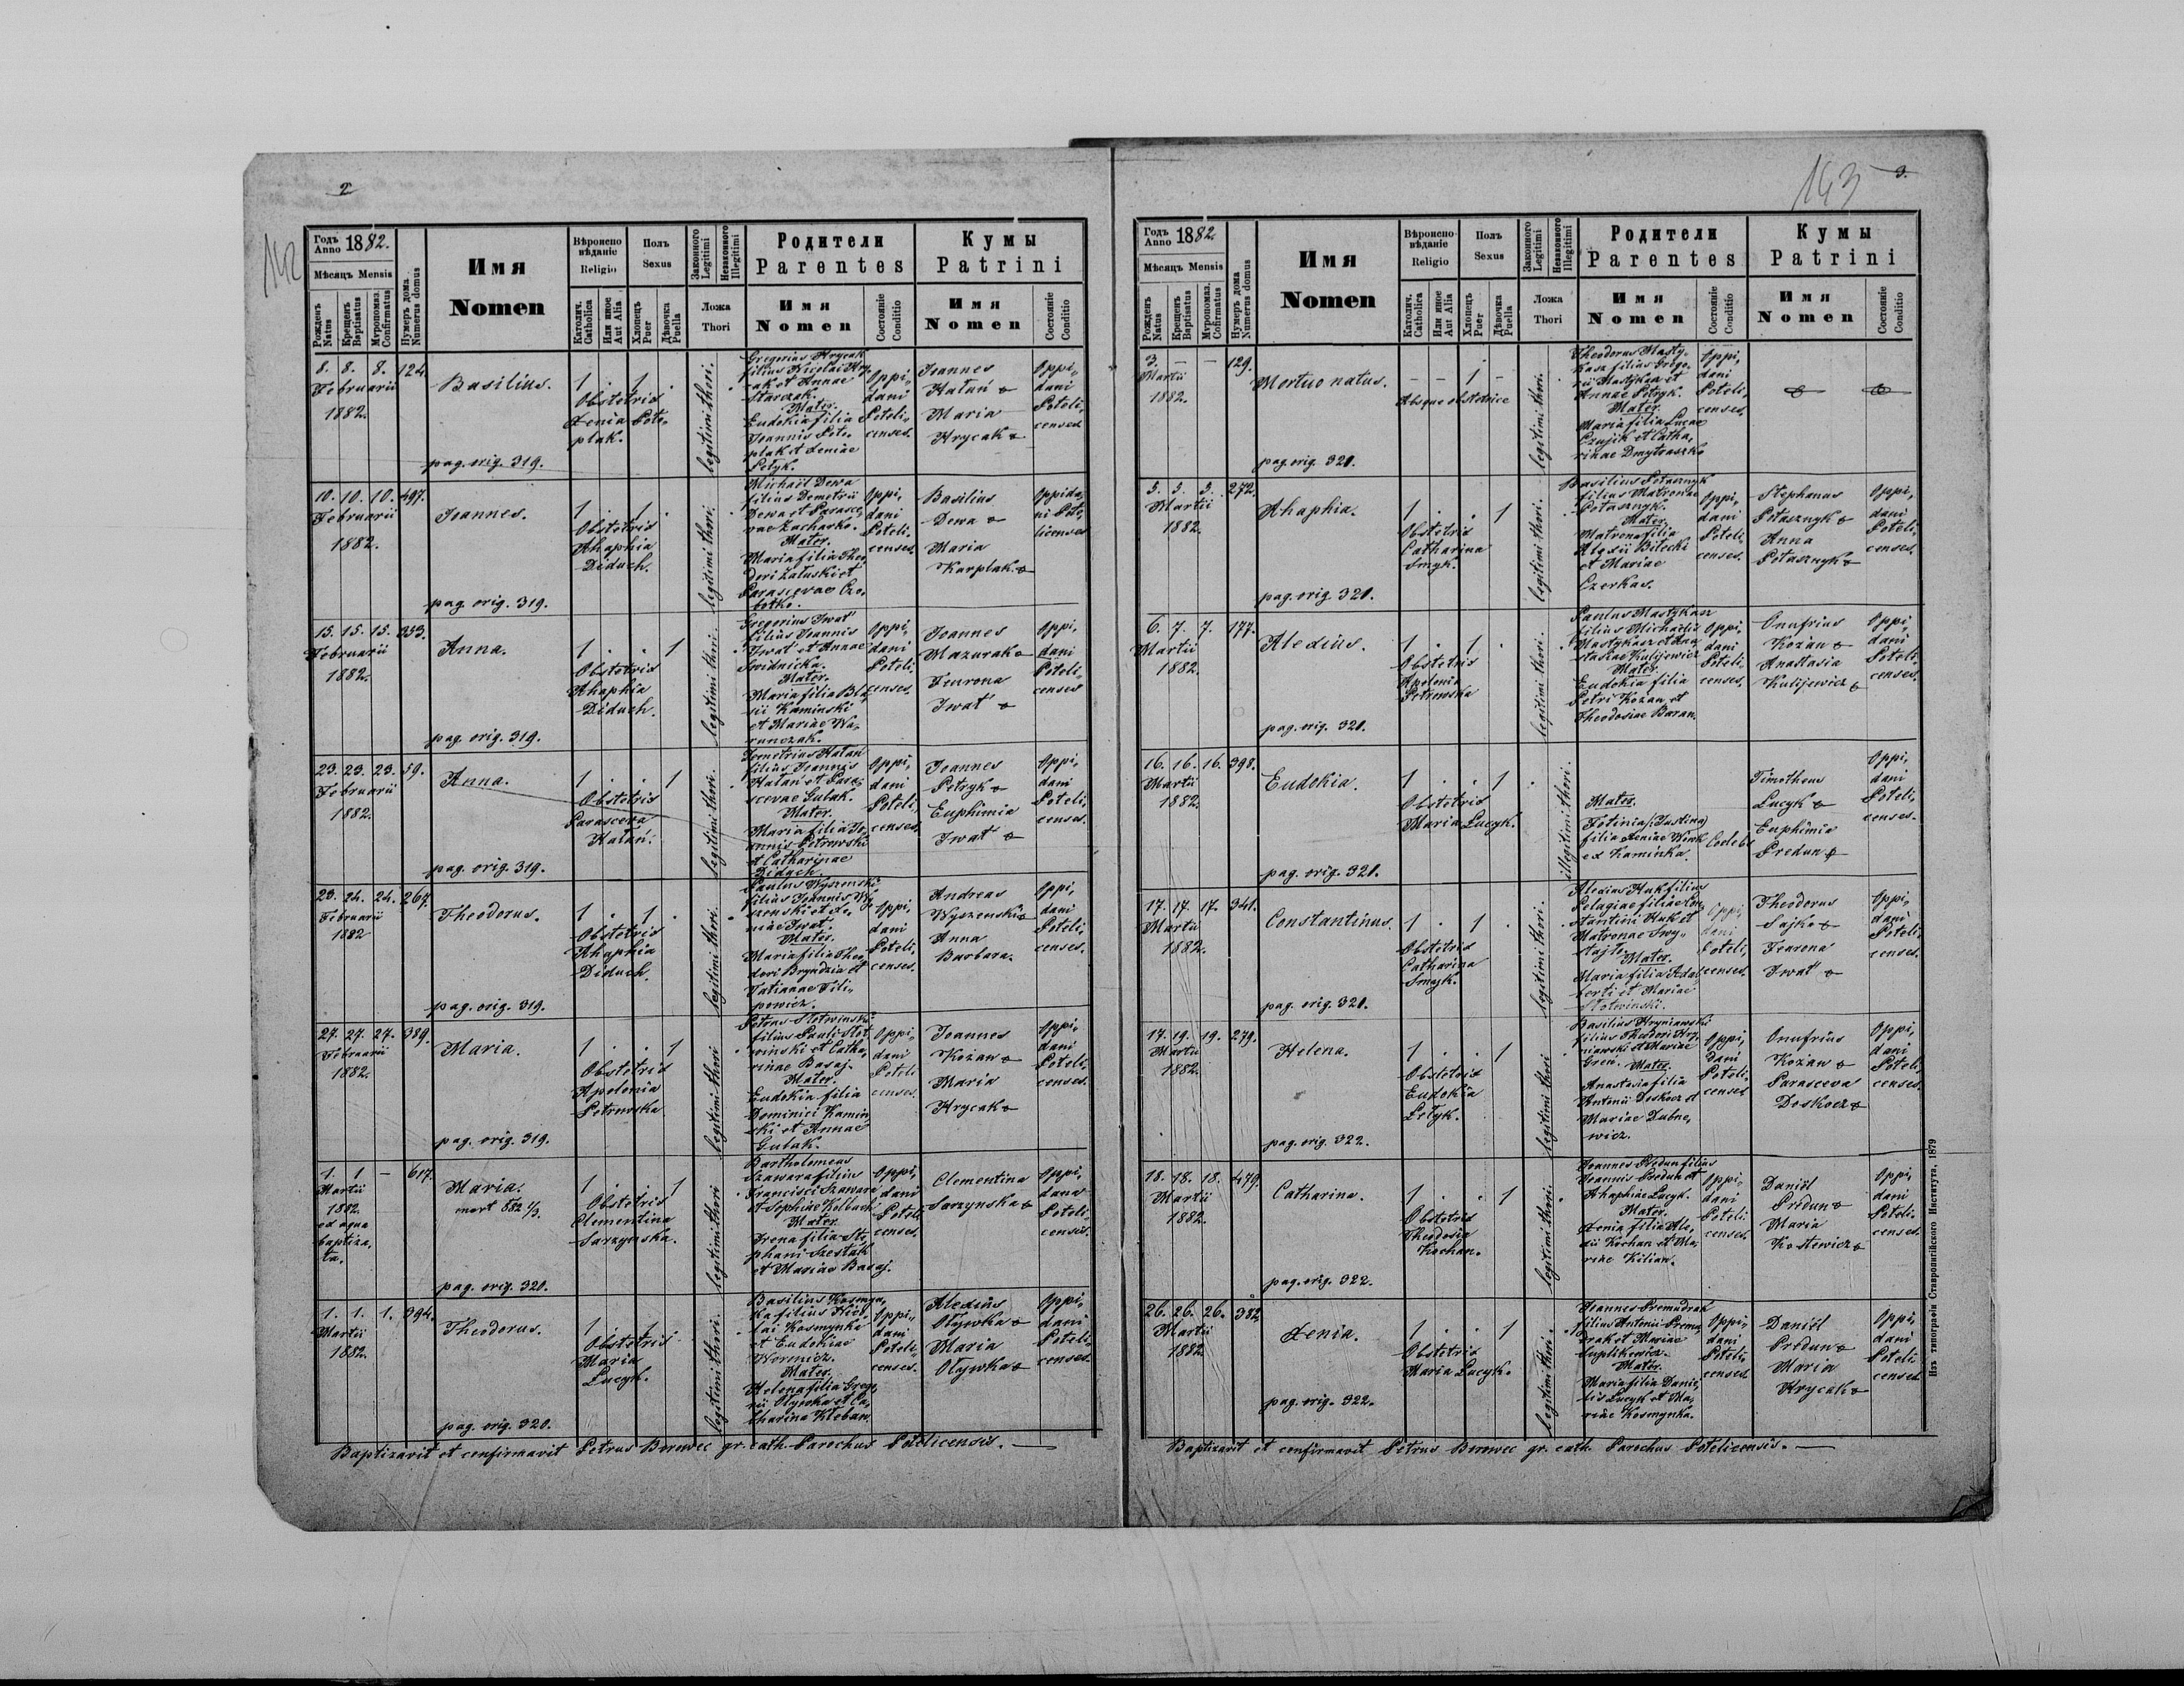 2
142
Годъ Anno 1882.
Мѣсяцъ Mensis
Рожденъ Natus
Крещенъ Baptisatus
Мѵропомаз. Confirmatus
Нумеръ дома Numerus domus
Имя
Nomen
Вѣроисповѣданіе
Religio
Католич. Catholica
Или иное Aut Alia
Полъ
Sexus
Хлопецъ Puer
Дѣвочка Puella
Законного Legitimi
Незаконного Illegitimi
Ложа
Thori
Родители
Parentes
Имя
Nomen
Состояніе Conditio
Кумы
Patrini
Имя
Nomen
Состояніе Conditio
8. 8. 8. 124
Februarii
1882.
Basilius.
1 . 1 .
Obstetrix
Xenia Pota-
plak.
pag. orig. 319.
legitimi thori.
Gregorius Hrycak
filius Nicolai Hry-
cak et Annae
Starczak.
Mater.
Eudokia filia
Joannis Pota-
plak et Xeniae
Petyk.
Oppi-
dani
Poteli-
censes.
Joannes
Hatan
Maria
Hrycak
Oppi-
dani
Poteli-
censes
10. 10. 10. 497.
Februarii
1882.
Joannes.
1 . 1 .
Obstetrix
Ahaphia
Diduch.
pag. orig. 319.
legitimi thori.
Michaël Dewa
filius Demetrii
Dewa et Parasce-
vae Zacharko.
Mater.
Maria filia Theo-
dori Załuski et
Parascevae Czo-
botko.
Oppi-
dani
Poteli-
censes.
Basilius
Dewa
Maria
Karplak.
Oppida-
ni Pote-
licenses
15. 15. 15. 353.
Februarii
1882.
Anna.
1 . . 1
Obstetrix
Ahaphia
Diduch.
pag. orig. 319.
legitimi thori.
Gregorius Iwat
filius Joannis
Iwat et Annae
Smidnicka.
Mater.
Maria filia Bla-
sii Kaminski
et Mariae Wa-
runczak.
Oppi-
dani
Poteli-
censes.
Joannes
Mazurak
Feurona
Iwat
Oppi-
dani
Poteli-
censes
23. 23. 23. 59.
Februarii
1882.
Anna.
1 . . 1
Obstetrix
Parasceva
Hatan.
pag. orig. 319.
legitimi thori.
Demetrius Hatan
filius Joannis
Hatan et Para-
scevae Gulak.
Mater.
Maria filia Jo-
annis Petrowski
et Catharinae
Diduch.
Oppi-
dani
Poteli-
censes.
Joannes
Petryk
Euphimia
Iwat
Oppi-
dani
Poteli-
censes.
23. 24. 24. 267.
Februarii
1882
Theodorus.
1 . 1 .
Obstetrix
Ahaphia
Diduch.
pag. orig. 319.
legitimi thori.
Paulus Wyszenski
filius Joannis Wy-
szenski et Xe-
niae Iwat.
Mater.
Maria filia Theo-
dori Bryndzia et
Tatianae Fili-
powicz.
Oppi-
dani
Poteli-
censes.
Andreas
Wyszenski
Anna
Barbara.
Oppi-
dani
Poteli-
censes.
27. 27. 27. 389.
Februarii
1882.
Maria.
1 . . 1
Obstetrix
Apolonia
Petrowska
pag. orig. 319.
legitimi thori
Petrus Slotwinski
filius Pauli Slot-
winski et Catha-
rinae Basaj.
Mater.
Eudokia filia
Dominici Kamin-
ski et Annae
Gulak.
Oppi-
dani
Poteli-
censes.
Joannes
Kozan
Maria
Hrycak
Oppi-
dani
Poteli-
censes.
1. 1 — 617.
Martii
1882.
ex aqua
baptiza-
ta.
Maria.
mort 882 1/3.
1 . . 1
Obstetrix
Clementina
Sarzynska.
pag. orig. 320.
legitimi thori
Bartholomeus
Szawara filius
Francisci Szawara
et Sophiae Kolbuch
Mater.
Irena filia Ste-
phani Szestak
et Mariae Basaj.
Oppi-
dani
Poteli-
censes.
Clementina
Sarzynska
Oppi-
dana
Poteli-
censis.
1. 1. 1. 394.
Martii
1882.
Theodorus.
1 . 1 .
Obstetrix
Maria
Lucyk.
pag. orig. 320.
legitimi thori.
Basilius Kosmyn-
ka filius Nico-
lai Kosmynka
et Eudokiae
Mater.
Helena filia Grego-
rii Otywka et Ca-
tharina Kleban
Oppi-
dani
Poteli-
censes.
Alexius
Otywka
Maria
Otywka
Oppi-
dani
Poteli-
censes.
Baptizavit et confirmavit Petrus Borowec gr. cath. Parochus Potelicensis. —
143
3.
Годъ Anno 1882.
Мѣсяцъ Mensis
Рожденъ Natus
Крещенъ Baptisatus
Мѵропомаз. Cofirmatus
Нумеръ дома Numerus domus
Имя
Nomen
Вѣроисповѣданіе
Religio
Католич. Catholica
Или иное Aut Alia
Полъ
Sexus
Хлопецъ Puer
Дѣвочка Puella
Законного Legitimi
Незаконного Illegitimi
Ложа
Thori
Родители
Parentes
Имя
Nomen
Состояніе Conditio
Кумы
Patrini
Имя
Nomen
Состояніе Conditio
3. — — 129.
Martii
1882.
Mortuo natus.
— — 1 —
Absque obstetrice
pag. orig. 320.
legitimi thori.
Theodorus Masty-
kasz filius Grego-
rii Mastykasz et
Annae Petryk.
Mater.
Maria filia Lucae
Czujik et Catha-
rinae Dmytraszko
Oppi-
dani
Poteli-
censes.
5. 5. 5. 272.
Martii
1882.
Ahaphia.
1 . . 1
Obstetrix
Catharina
Smyk.
pag. orig. 320.
legitimi thori.
Basilius Potasznyk
filius Matronae
Potasznyk.
Mater.
Matrona filia
Alexii Bilecki
et Mariae
Czerkas.
Oppi-
dani
Poteli-
censes.
Stephanus
Potasznyk
Anna
Potasznyk
Oppi-
dani
Poteli-
censes.
6. 7. 7. 177.
Martii
1882.
Alexius.
1 . 1 .
Obstetrix
Apolonia
Petrowska
pag. orig. 320.
legitimi thori.
Paulus Mastykasz
filius Michaëlis
Mastykasz et Ana-
stasiae Kulijewicz
Mater.
Eudokia filia
Petri Kozan et
Theodosiae Baran.
Oppi-
dani
Poteli-
censes.
Onufrius
Kozan
Anastasia
Kulijewicz
Oppi-
dani
Poteli-
censes.
16. 16. 16. 398.
Martii
1882.
Eudokia.
1 . . 1 .
Obstetrix
Maria Lucyk.
pag. orig. 320.
illegitimi thori.
Mater.
Fotinia (Justina)
filia Xeniae Wenk
ex Kaminka.
Coelebs
Timotheus
Lucyk
Euphimia
Predun
Oppi-
dani
Poteli-
censes.
17. 17. 17. 341.
Martii
1882.
Constantinus.
1 . 1 .
Obstetrix
Catharina
Smyk.
pag. orig. 320.
legitimi thori.
Alexius Huk filius
Pelagiae filiae Con-
stantini Huk et
Matronae Swy-
stajlo.
Mater.
Maria filia Adal-
berti et Mariae
Slotwinski.
Oppi-
dani
Poteli-
censes.
Theodorus
Sajko
Feurona
Iwat
Oppi-
dani
Poteli-
censes.
17. 19. 19. 279.
Martii
1882.
Helena.
1 . . 1
Obstetrix
Eudokia
Petyk.
pag. orig. 322.
legitimi thori
Basilius Hryniawski
filius Theodori Hry-
niawski et Mariae
Gren.
Mater.
Anastasia filia
Antonii Doskocz et
Mariae Dubne-
wicz.
Oppi-
dani
Poteli-
censes
Onufrius
Kozan
Parasceva
Doskocz
Oppi-
dani
Poteli-
censes.
18. 18. 18. 479.
Martii
1882.
Catharina.
1 . . 1
Obstetrix
Theodosia
Kochan.
pag. orig. 322.
legitimi thori.
Joannes Predun filius
Joannis Predun et
Ahaphiae Lucyk.
Mater.
Xenia filia Ale-
xii Kochan et Ma-
riae Kilian.
Oppi-
dani
Poteli-
censes.
Daniël
Predun
Maria
Kostewicz
Oppi-
dani
Poteli-
censes.
26. 26. 26. 382
Martii
1882.
Xenia.
1 . . 1
Obstetrix
Maria Lucyk.
pag. orig. 322.
legitimi thori.
Joannes Premudrak
filius Antonii Premu-
drak et Mariae
Mater.
Maria filia Danie-
lis Lucyk et Ma-
riae Kosmynka.
Oppi-
dani
Poteli-
censes
Daniël
Predun
Maria
Hrycak
Oppi-
dani
Poteli-
censes
Baptizavit et confirmavit Petrus Borowec gr. cath. Parochus Potelicensis. —
Изъ типографіи Ставропигійского Института. 1879